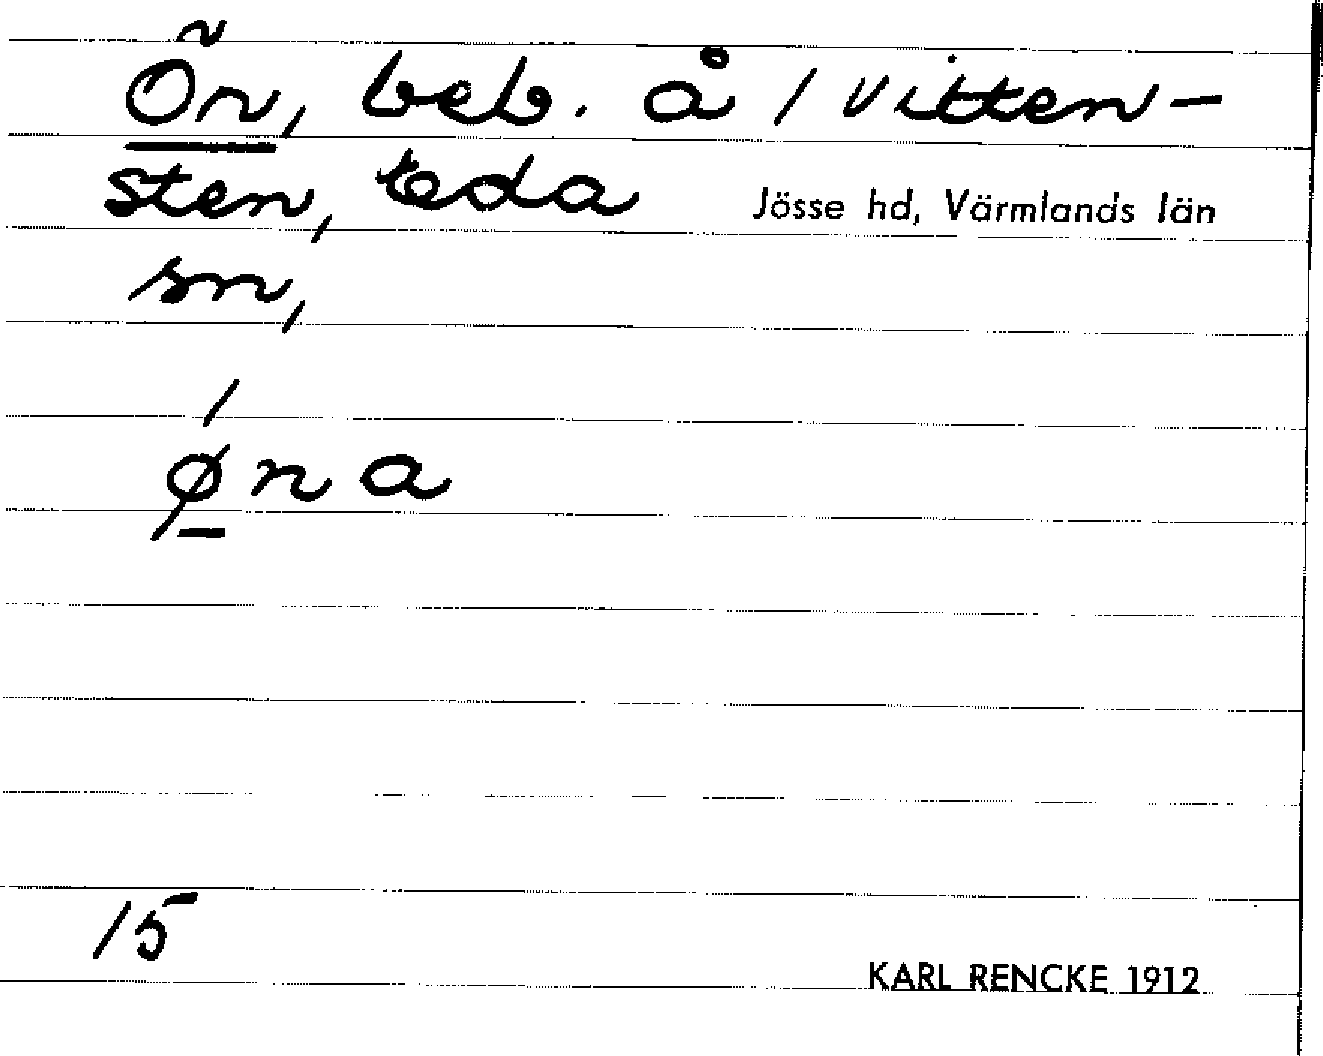 Ön, beb. å /Vitten-
sten, Eda Jösse hd, Värmlands län
sn,
ǿ̱na
15
KARL RENCKE 1912